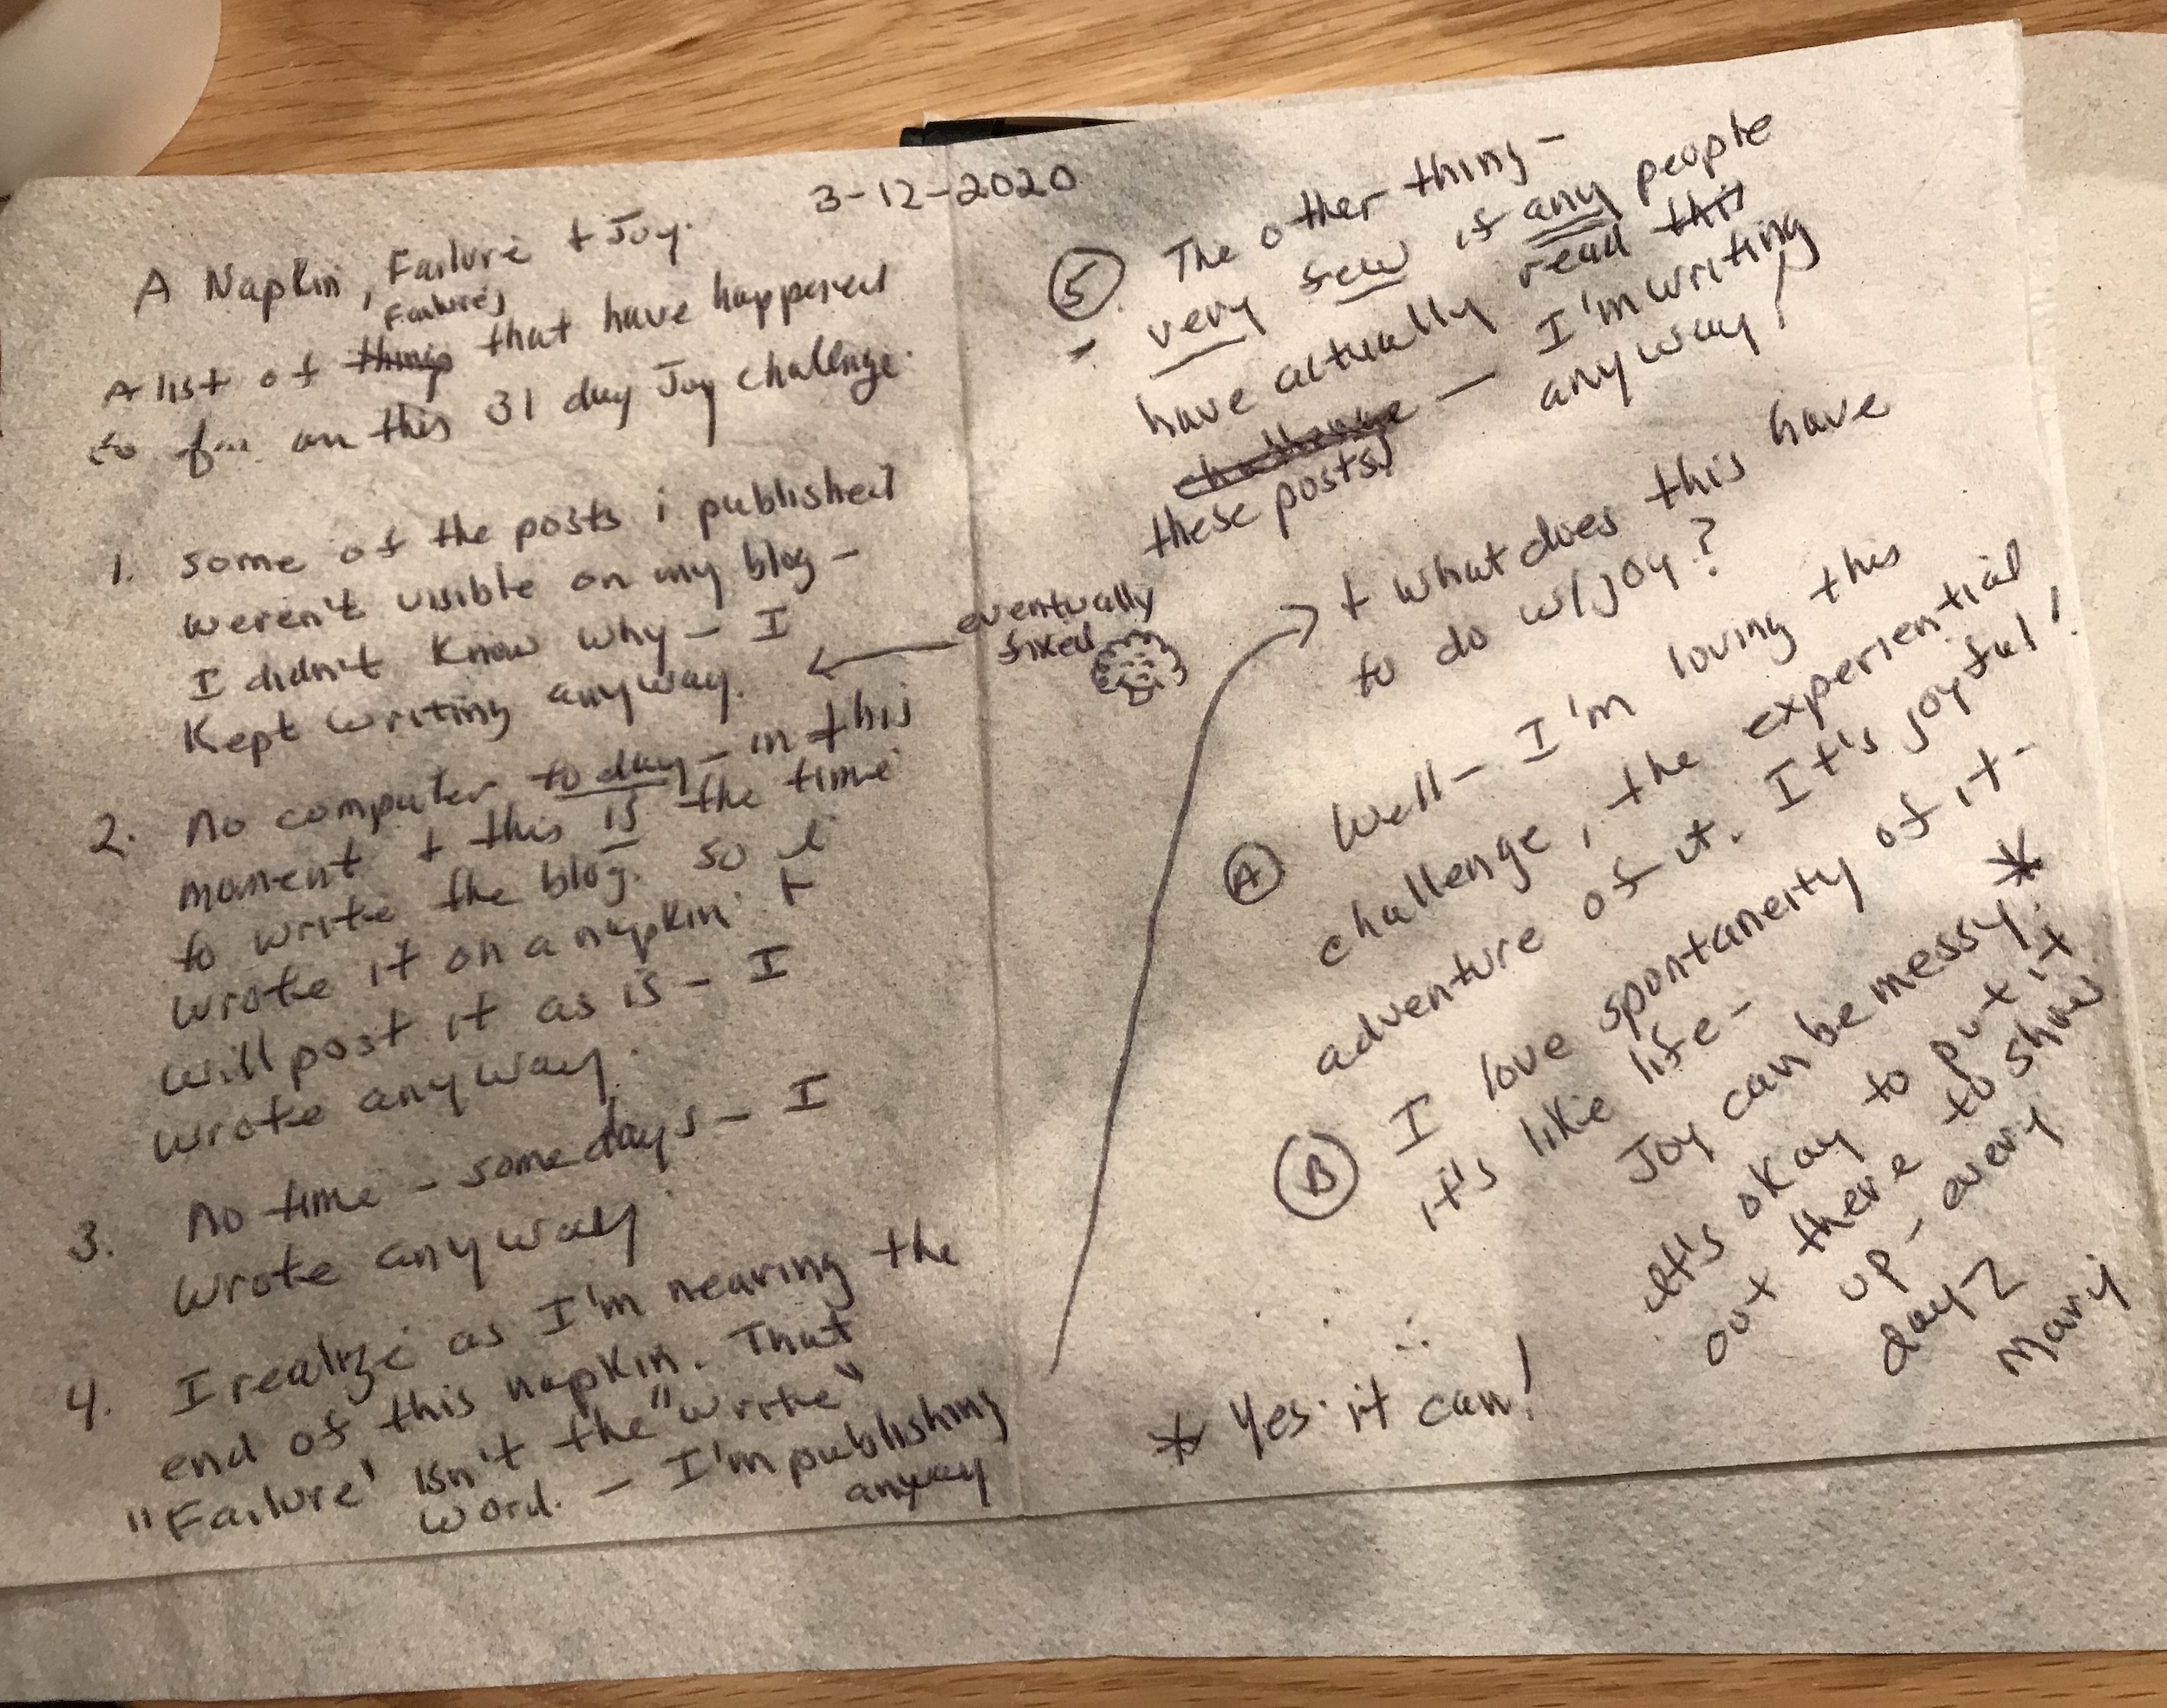 3-12-2020
A Napkin, Failure + Joy.
Failures
A list of things that have happened
so far on this 31 day Joy challenge.
1. some of the posts i published
weren't visible on my blog -
I didn't know why - I
kept writing anyway.
eventually
fixed
2. No computer today - in this
moment + this is the time
to write the blog. so I
wrote it on a napkin +
will post it as is - I
wrote anyway.
3. No time - some days - I
wrote anyway
4. I realize as I'm nearing the
end of this napkin. That
"Failure" isn't the "write"
word. - I'm publishing
anyway
5. The other thing -
- very few if any people
have actually read this
challenge - I'm writing
these posts) anyway!
+ what does this have
to do w/joy?
A Well - I'm loving this
challenge, the experiential
adventure of it. It's joyful!
B I love spontaneity of it -
it's like life -
Joy can be messy. *
It's okay to put it
out there to show
up - every
day
Mary
* Yes. it can!